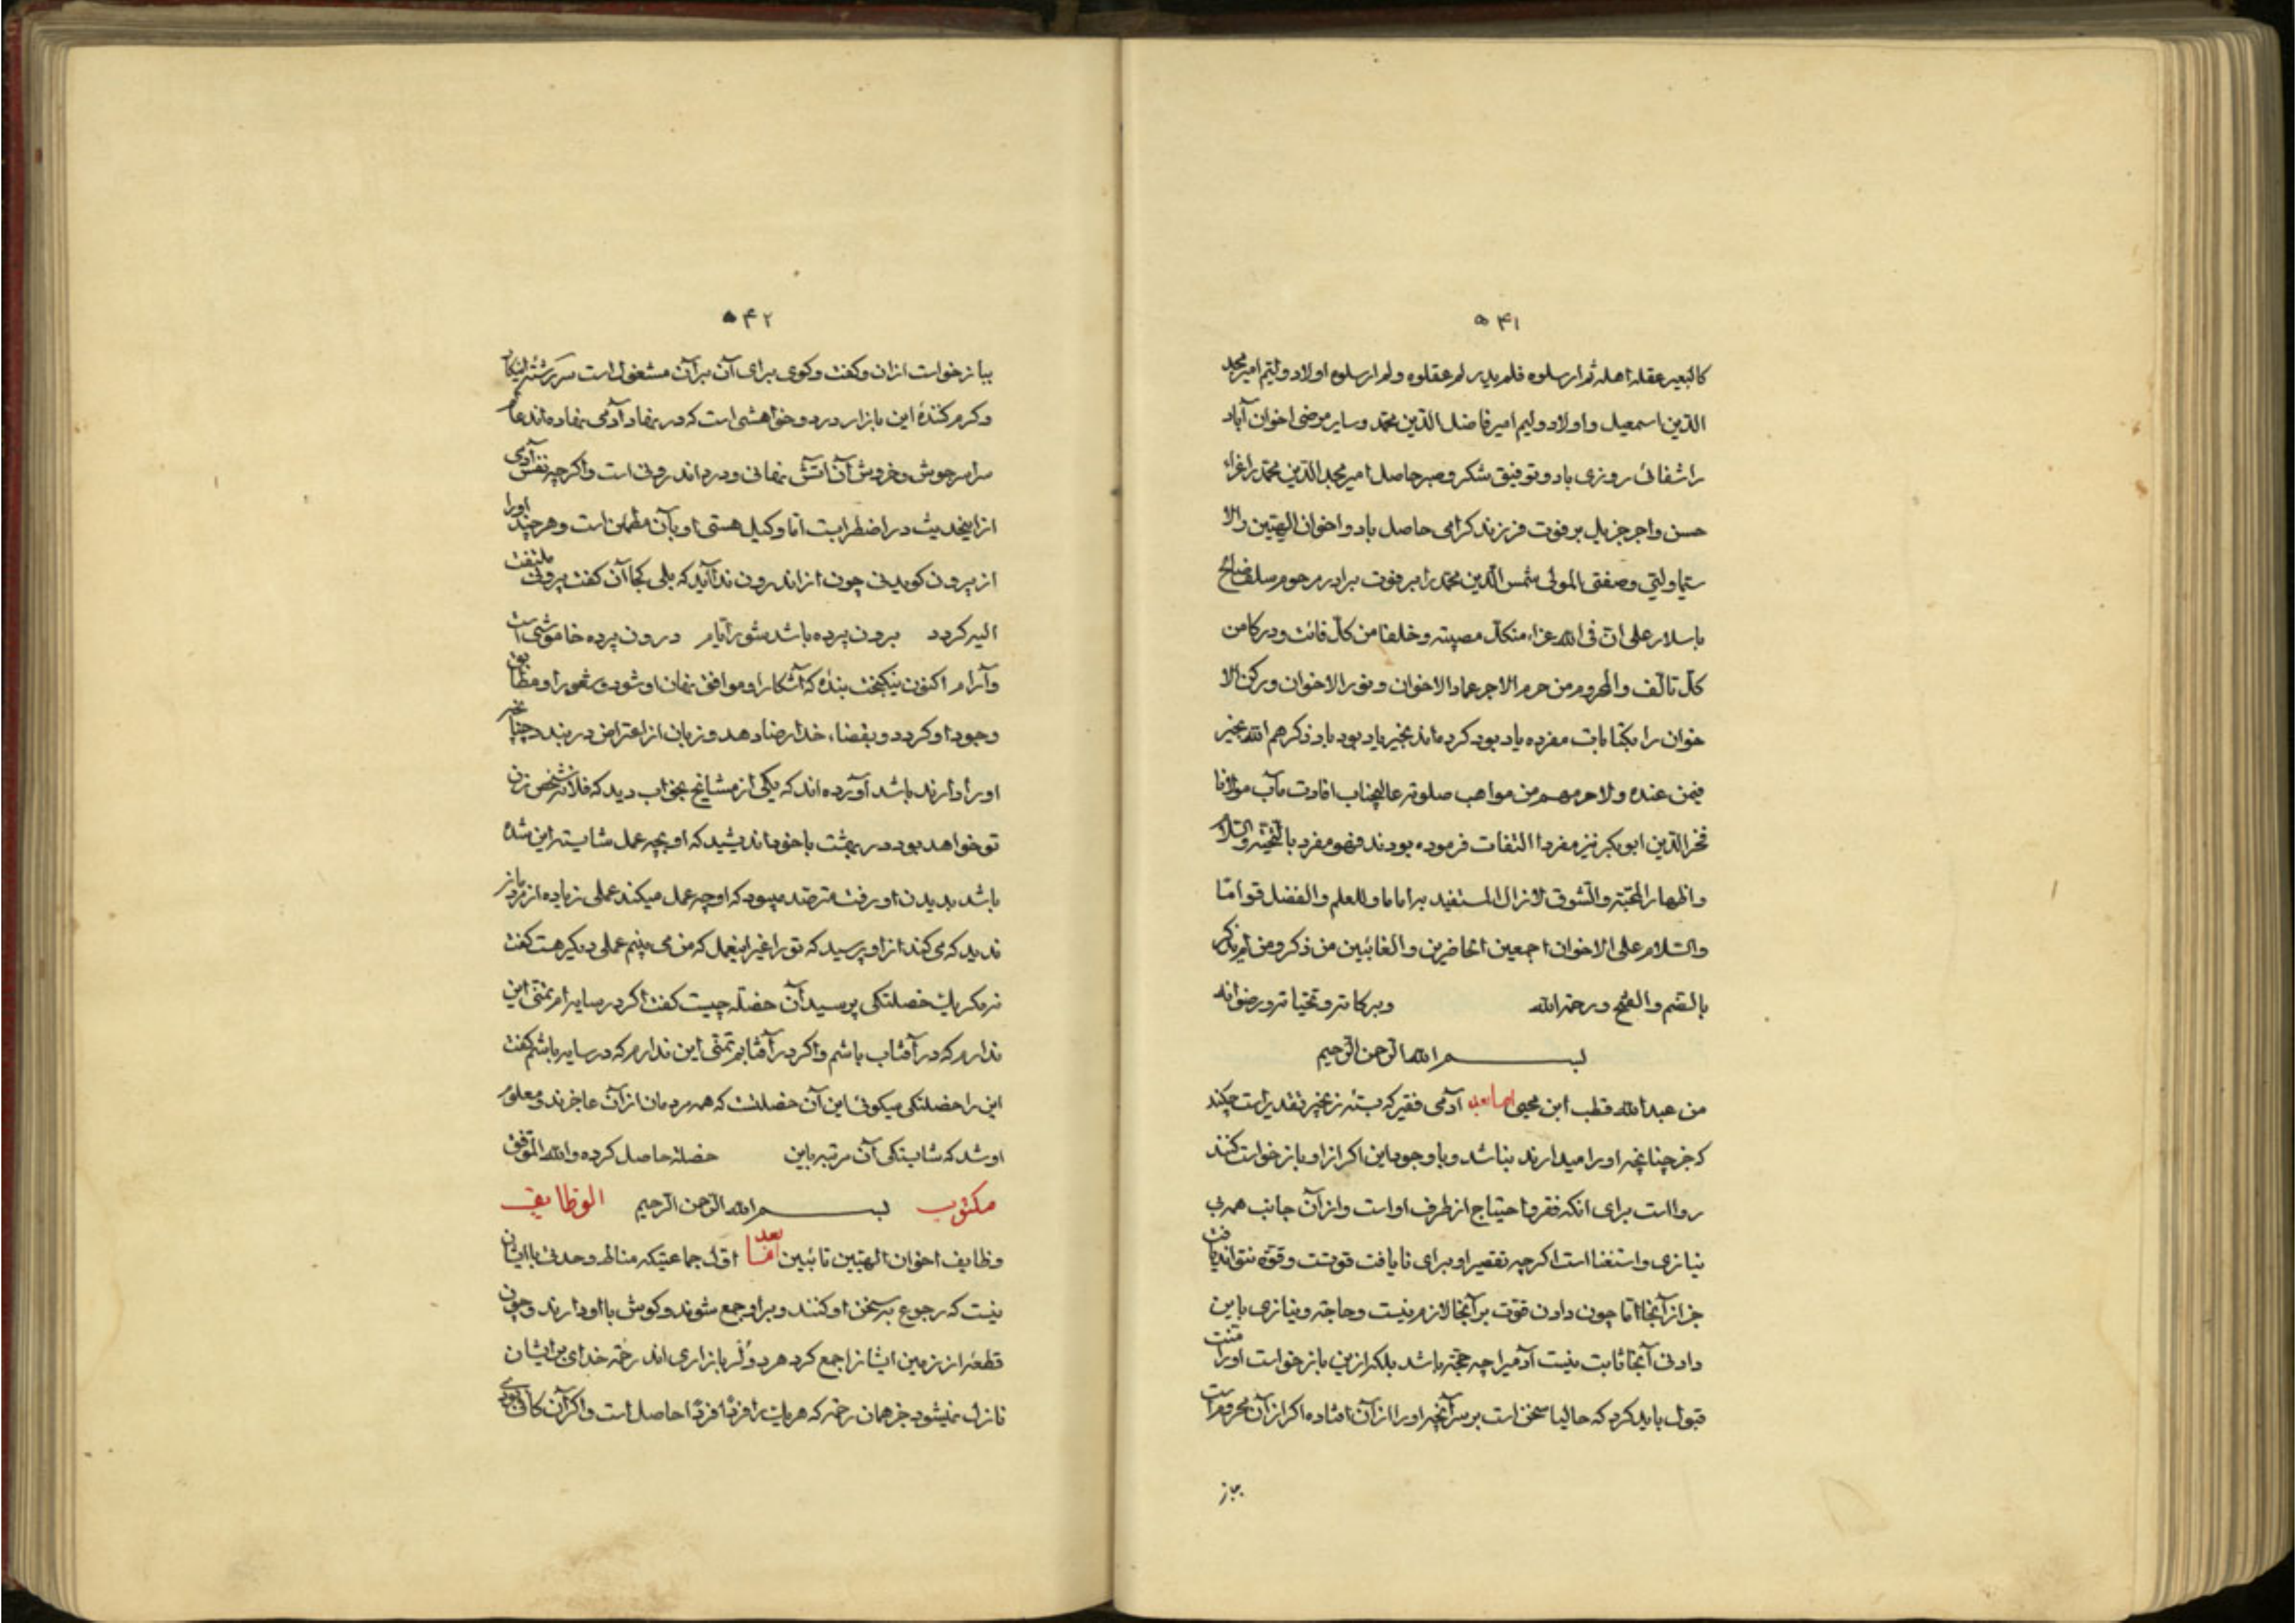 ۵۴۱
کالبعیر عقله اهله ثم ارسلوه فلم یدر لم عقلوه ولم ارسلوه اولاد ولیم امیر مجد
الدین اسمعیل و اولاد ولیم امیر فاضل الدین محمد و سایر مرضی اخوان آباد
را شفائ روزی باد و توفیق شکر و صبر حاصل امیر مجد الدین محمد را عزاء
حسن و اجر جزیل بر فوت فرزند کرامی حاصل باد و اخوان الهیین را لا
سیما ولیی و صفیی المولی شمس الدین محمد را بر فوت برادر مرحوم سلف صالح
باسلار علی ان فی الله عزاء من کل مصیبة و خلفا من کل فائت و درکا من
کل تالف و المحروم من حرم الاجر عماد الاخوان و نور الاخوان و رکن الا
خوان را بکتابات مفرده یاد بود کرده‌اند بخیر یاد بود باد ذکرهم الله بخیر
فیمن عنده ولا حرمهم من مواهب صلوته عالیجناب افادت مآب مولانا
فخر الدین ابو بکر نیز مفردا التفات فرموده بودند فهو مفرد بالتحیة والسلام
واظهار المحبة والشوق لازال المستفید براماما وللعلم والفضل قواما
والسلام علی الاخوان اجمعین الحاضرین والغائبین من ذکر ومن لم یذکر
بالضم والفتح ورحمة الله وبرکاته وتحیاته ورضوانه
بسم الله الرحمن الرحیم
من عبد الله قطب ابن محیی اما بعد آدمی فقیر که بسته زنجیر تقدیر است چکند
که جز چنانچه او را میدارند نباشد و با وجود این اکر از او بازخواست کنند
روا است برای انکه فقر و احتیاج از طرف او است و از آن جانب همه بی
نیازی و استغنا است اکرچه تقصیر او برای نایافت قوتست و قوه نتواند یافت
جز از آنجا اما چون دادن قوت بر آنجا لازم نیست و حاجة و نیازی باین
دادن آنجا ثابت نیست آدمیرا چه حجة باشد بلکه ازین بازخواست او را منت
قبول باید کرد که حالیا سخن است بر سر آنچه او را از آن افتاده اکر از آن محروم است
بباز
۵۴۲
بباز خواست ازان و کفت و کوی برای آن بر آن مشغول است سررشته اینکار
و کرم کنندهٔ این بازار درد و خواهشی است که در نهاد آدمی نهاده‌اند عالم
سراسر جوش و خروش آن اتش نهانی و درد اندرونی است و اکرچه نفس آدمی
از اینحدیث در اضطرابست اما وکیل هستی او بآن مطمئن است و هرچند او را
از بیرون کوید نی چون از اندرون ندا آید که بلی کجا آن کفت بیرونی ملتفت
الیه کردد برون پرده باشد شور ایام درون پرده خاموشی است
و آرام اکنون نیکبخت بندهٔ که آشکار او موافق نهان او شود و شعور او مطابق
وجود او کردد و بقضاء خدا رضا دهد و زبان از اعتراض در بندد چنانچه
او را دارند باشد آورده‌اند که یکی از مشایخ بخواب دید که فلانه شخص زن
تو خواهد بود در بهشت با خود اندیشید که او بچه عمل شایسته این شده
باشد بدیدن او رفت مترصد میبود که او چه عمل میکند عملی زیاده از مرد باز
ندید که می کند از او پرسید که تو را غیر اینعمل که من می بینم عملی دیکر هست کفت
نه مکر یک خصلتکی پرسید آن خصله چیست کفت اکر در سایه ام تمنی این
ندارم که در آفتاب باشم و اکر در آفتابم تمنی این ندارم که در سایه باشم کفت
این را خصلتکی میکوئی این آن خصلتست که همه مردمان از آن عاجزند و معلوم
او شد که شایستکی آن مرتبه باین خصلة حاصل کرده و الله الموفق
مکتوب بسم الله الرحمن الرحیم الوظایف
وظایف اخوان الهیین تائبین اما بعد اول جماعتیکه مناط وحدتی با ایشان
نیست که رجوع به سخن او کنند و بر او جمع شوند و کوش با او دارند و چون
قطعهٔ از زمین ایشانرا جمع کرد هر دو کر بازاری اند رحمة خدای بر ایشان
نازل نمیشود جز همان رحمة که هر یک را فردا فردا حاصل است و اکر آن کافی بودی